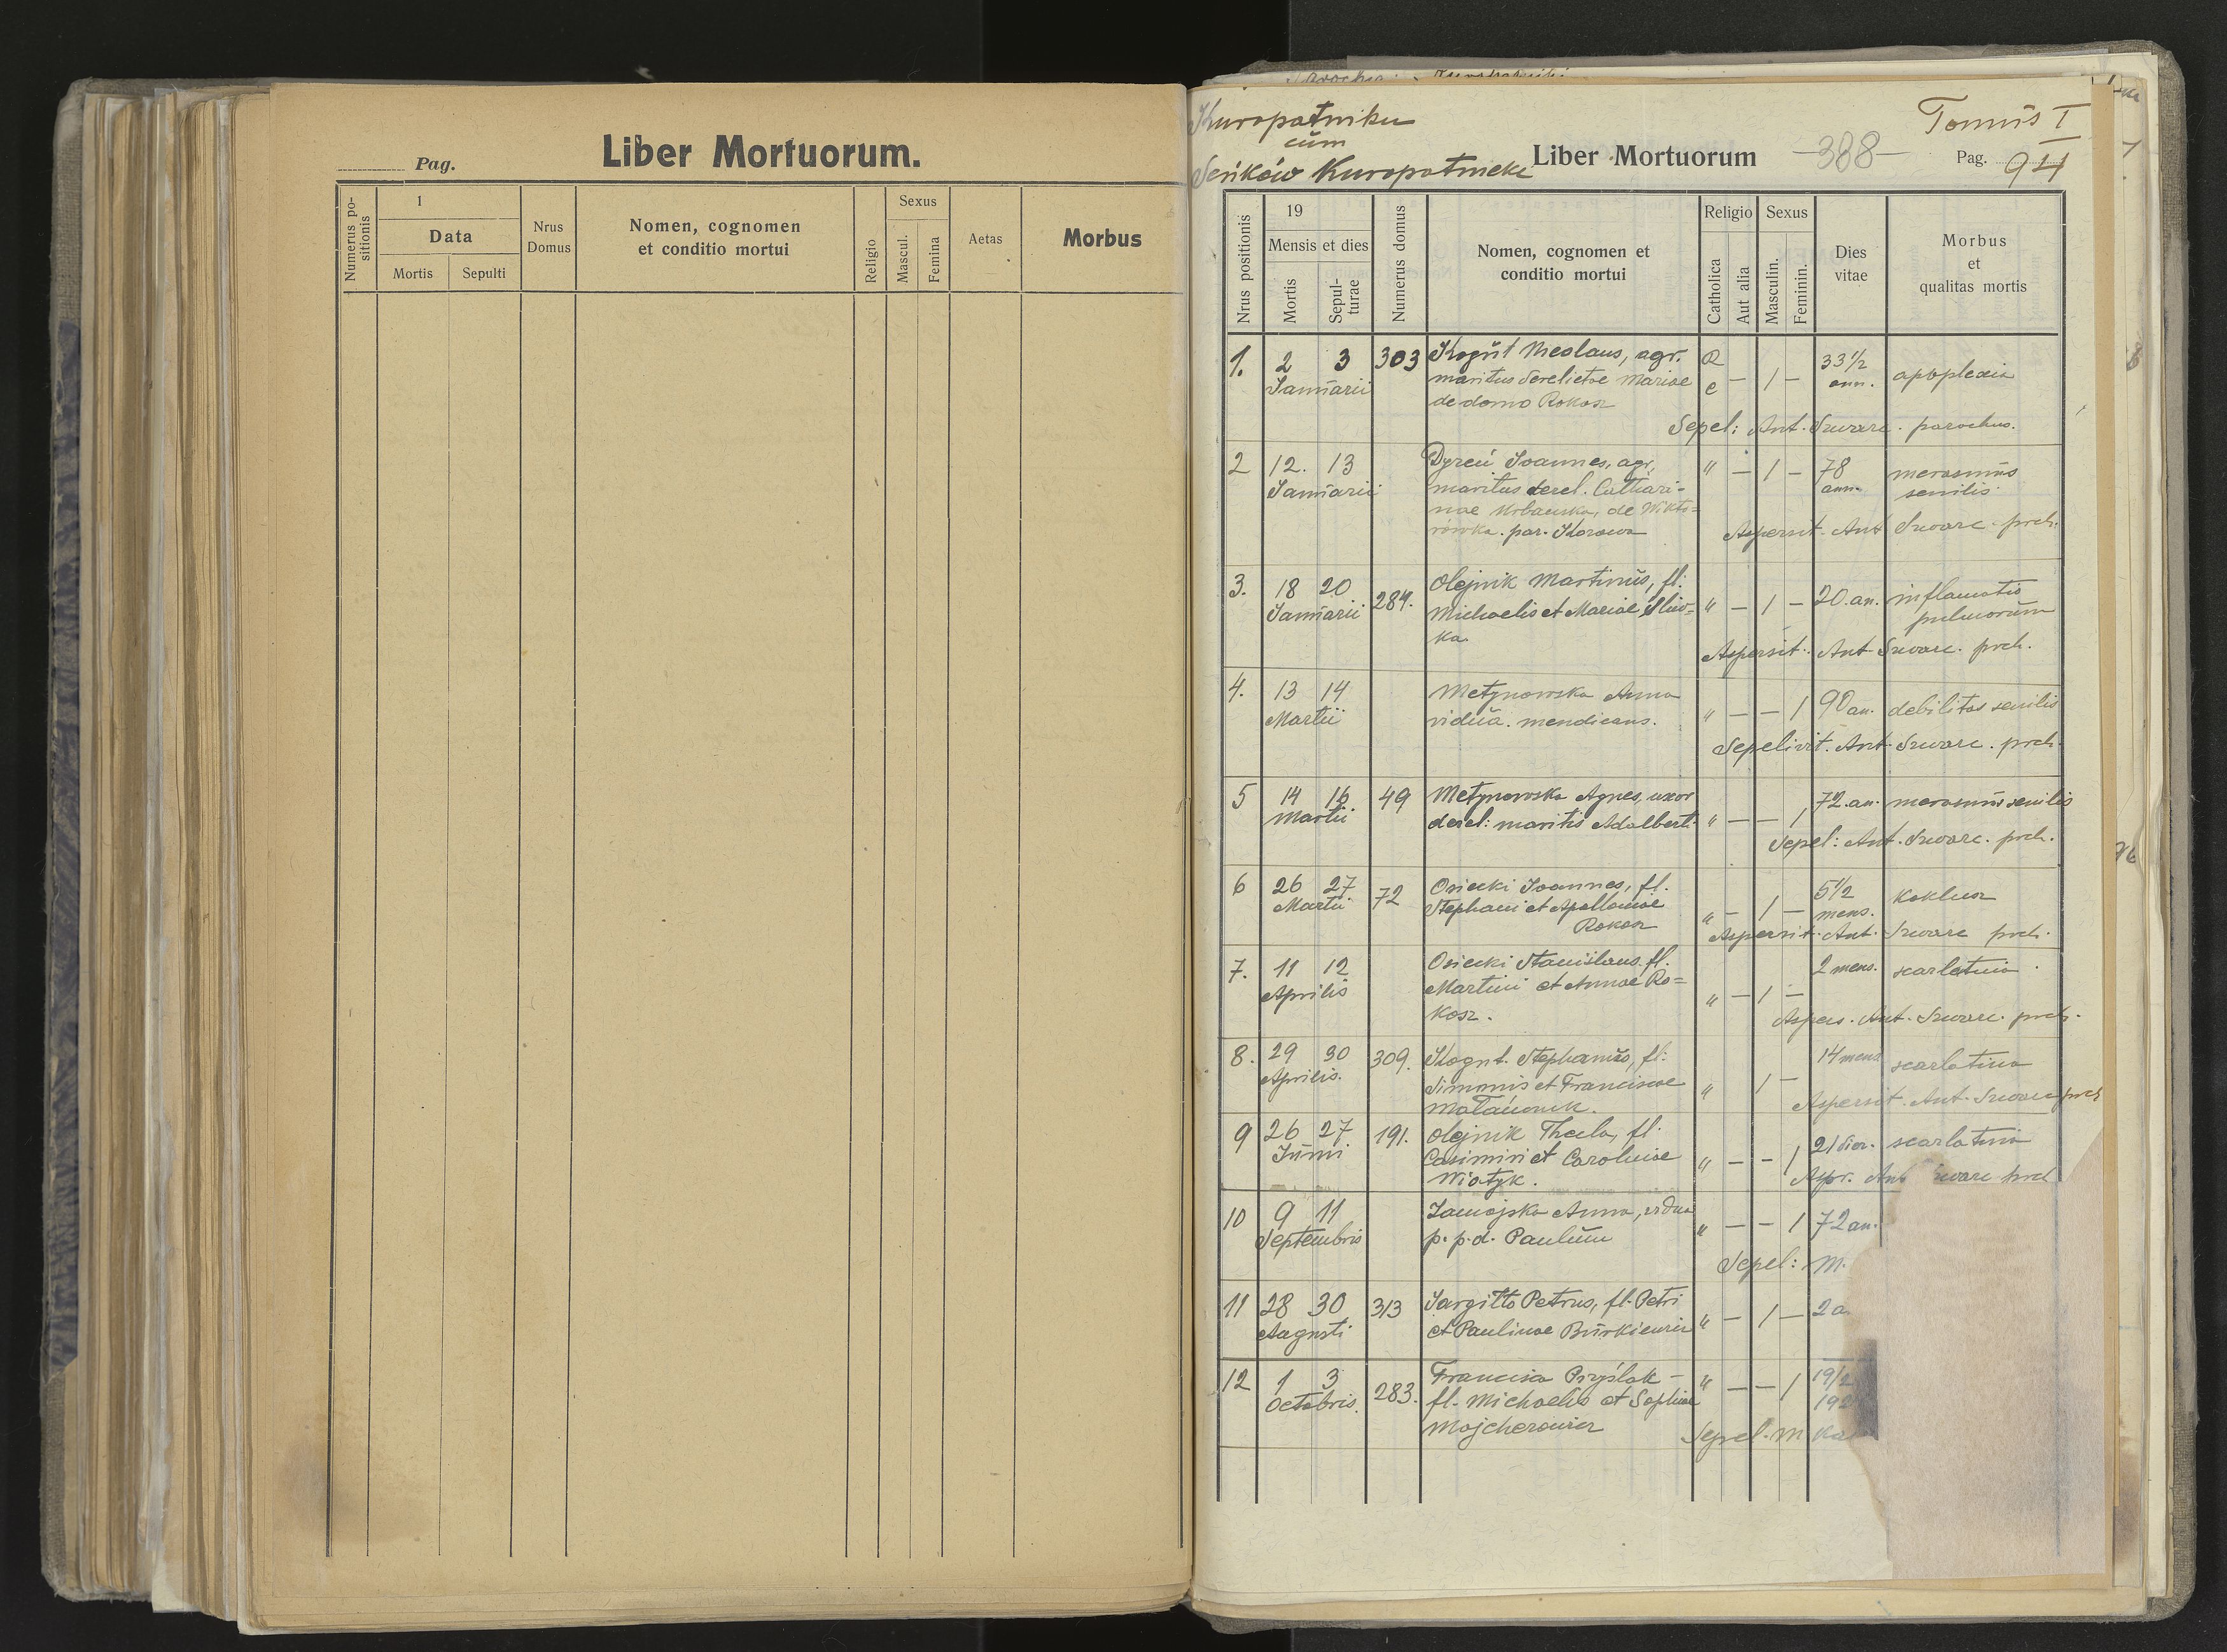 Pag.
Liber Mortuorum.
Numerus positionis
1
Data
Mortis
Sepulti
Nrus Domus
Nomen, cognomen
et conditio mortui
Religio
Sexus
Mascul.
Femina
Aetas
Morbus
Kuropatniku
cum
Kuropatnicke
Liber Mortuorum
-388-
Tomus I
Pag. 94
Nrus positionis
19
Mensis et dies
Mortis
Sepulturae
Numerus domus
Nomen, cognomen et
conditio mortui
Religio
Catholica
Aut alia
Sexus
Masculin.
Feminin.
Dies
vitae
Morbus
et
qualitas mortis
1. 2 3 303 Kogut Nicolaus, agr. R 33 1/2
Januarii maritus derelictae Mariae c — 1 — ann. apoplexia
de domo Rokosz
Sepel: Ant. Szwarc. parochus.
2 12. 13 Joannes, agr. " — 1 — 78 marasmus
Januarii maritus derel. Cathari- ann. senilis
nae Urbanska, de Wikto=
rówka. par. Kozowa Aspersit. Ant Szwarc. prch.
3. 18 20 284. Olejnik Martinus, fl:
Januarii Michaelis et Mariae Śliw= " — 1 — 20. an. inflamatio
ka pulmorum
Aspersit. Ant. Szwarc. prch.
4. 13 14 Metynowska Anna
Martii vidua. mendicans. " — — 1 90 an. debilitas senilis
Sepelivit. Ant. Szwarc. prch.
5 14 16 49 Metynowska Agnes, uxor 72. an. marasmus senilis
Martii derel: maritis Adalberti " — — 1
Sepel: Ant. Szwarc. prch.
6 26 27 72 Osiecki Joannes, fl. 5 1/2 koklusz
Martii Stephani et Apolloniae " — 1 — mens.
Rokosz Aspersit. Ant. Szwarc prch.
7. 11 12 Osiecki Stanislaus. fl. 2 mens. scarlatina
Aprilis Martini et Annae Ro= " — 1 —
kosz. Aspers. Ant. Szwarc. prch.
8. 29 30 309. Kogut. Stephanus, fl: 14 mens
Aprilis. Simonis et Franciscae " 1 — scarlatina
Aspersit. Ant. Szwarc prch
9 26 27 191. Olejnik Thecla, fl. 21 dier. scarlatina
Junii Casimiri et Carolinae " — — 1
Wiatyk. Aspr. Ant prch
10 9 11 Zamojska Anna, vidua " — — 1 72 an.
Septembris p. p. d. Paulum
Sepel: M.
11 28 30 313 Jargiłło Petrus, fl. Petri " — 1 — 2 a
Augusti et Paulinae
12 1 3 283. Francisca Pryślak - " — — 1 19/2
Octobris. fl. Michaelis et Sophiae 192
Majcherowicz Sepel. M Ka